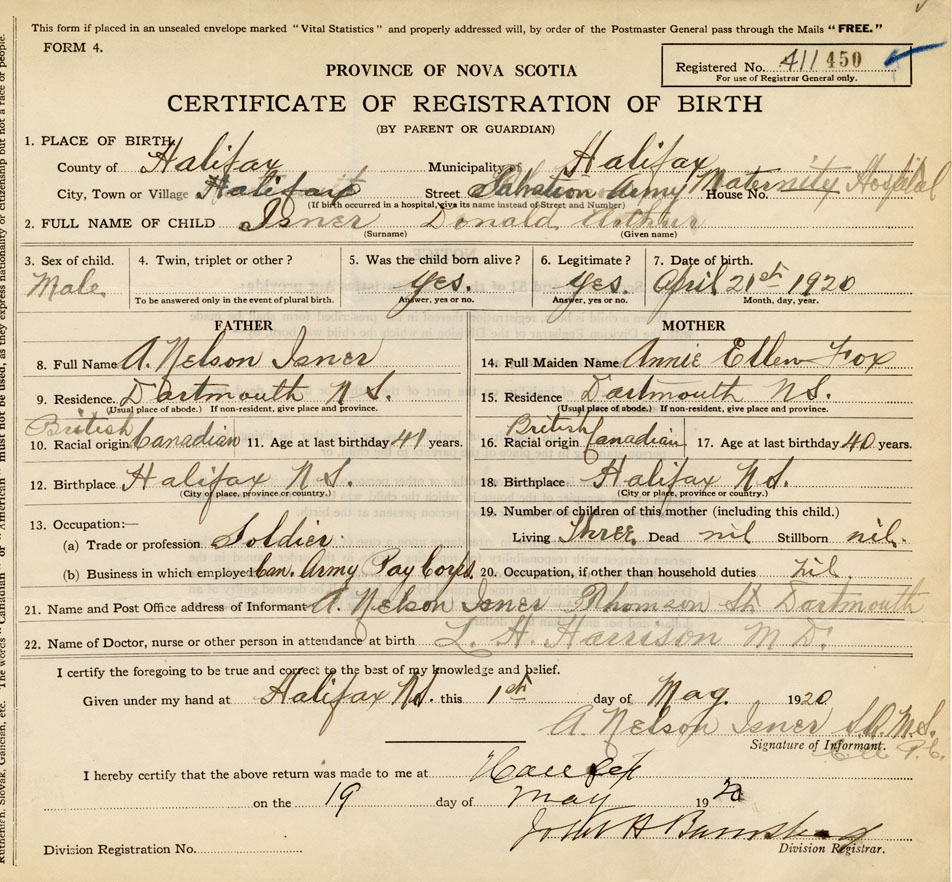 This form if placed in an unsealed envelope marked "Vital Statistics" and properly addressed will, by order of the Postmaster General pass through the Mails "FREE."
FORM 4.
Registered No. 411 450
For use of Registrar General only.
PROVINCE OF NOVA SCOTIA
CERTIFICATE OF REGISTRATION OF BIRTH
(BY PARENT OR GUARDIAN)
1. PLACE OF BIRTH
County of Halifax Municipality of Halifax
City, Town or Village Halifax Street Salvation Army Maternity Hospital House No.
(If birth occurred in a hospital, give its name instead of Street and Number)
2. FULL NAME OF CHILD Isner Donald Arthur
(Surname) (Given name)
3. Sex of child. 4. Twin, triplet or other? 5. Was the child born alive? 6. Legitimate? 7. Date of birth.
Male Yes. Yes. April 21st 1920
To be answered only in the event of plural birth. Answer, yes or no. Answer, yes or no. Month, day, year.
FATHER
8. Full Name A. Nelson Isner
9. Residence. Dartmouth N S.
(Usual place of abode.) If non-resident, give place and province.
British
10. Racial origin Canadian 11. Age at last birthday 41 years.
12. Birthplace Halifax N S.
(City or place, province or country.)
13. Occupation:—
(a) Trade or profession Soldier
(b) Business in which employed Can. Army Pay Corps
MOTHER
14. Full Maiden Name Annie Ellen Fox
15. Residence Dartmouth N S.
(Usual place of abode.) If non-resident, give place and province.
British
16. Racial origin Canadian 17. Age at last birthday 40 years.
18. Birthplace Halifax N S.
(City or place, province or country.)
19. Number of children of this mother (including this child.)
Living Three Dead nil Stillborn nil.
20. Occupation, if other than household duties nil
21. Name and Post Office address of Informant A. Nelson Isner Thomson St Dartmouth
22. Name of Doctor, nurse or other person in attendance at birth L. H. Harrison M D.
I certify the foregoing to be true and correct to the best of my knowledge and belief.
Given under my hand at Halifax N S. this 1st day of May 1920
A. Nelson Isner
Signature of Informant.
I hereby certify that the above return was made to me at Halifax
on the 19 day of May 1920
John H
Division Registrar.
Division Registration No.
The words "Canadian" or "American" must not be used, as they express nationality or citizenship but not a race or people.
Ruthenian, Slovak, Galician, etc.